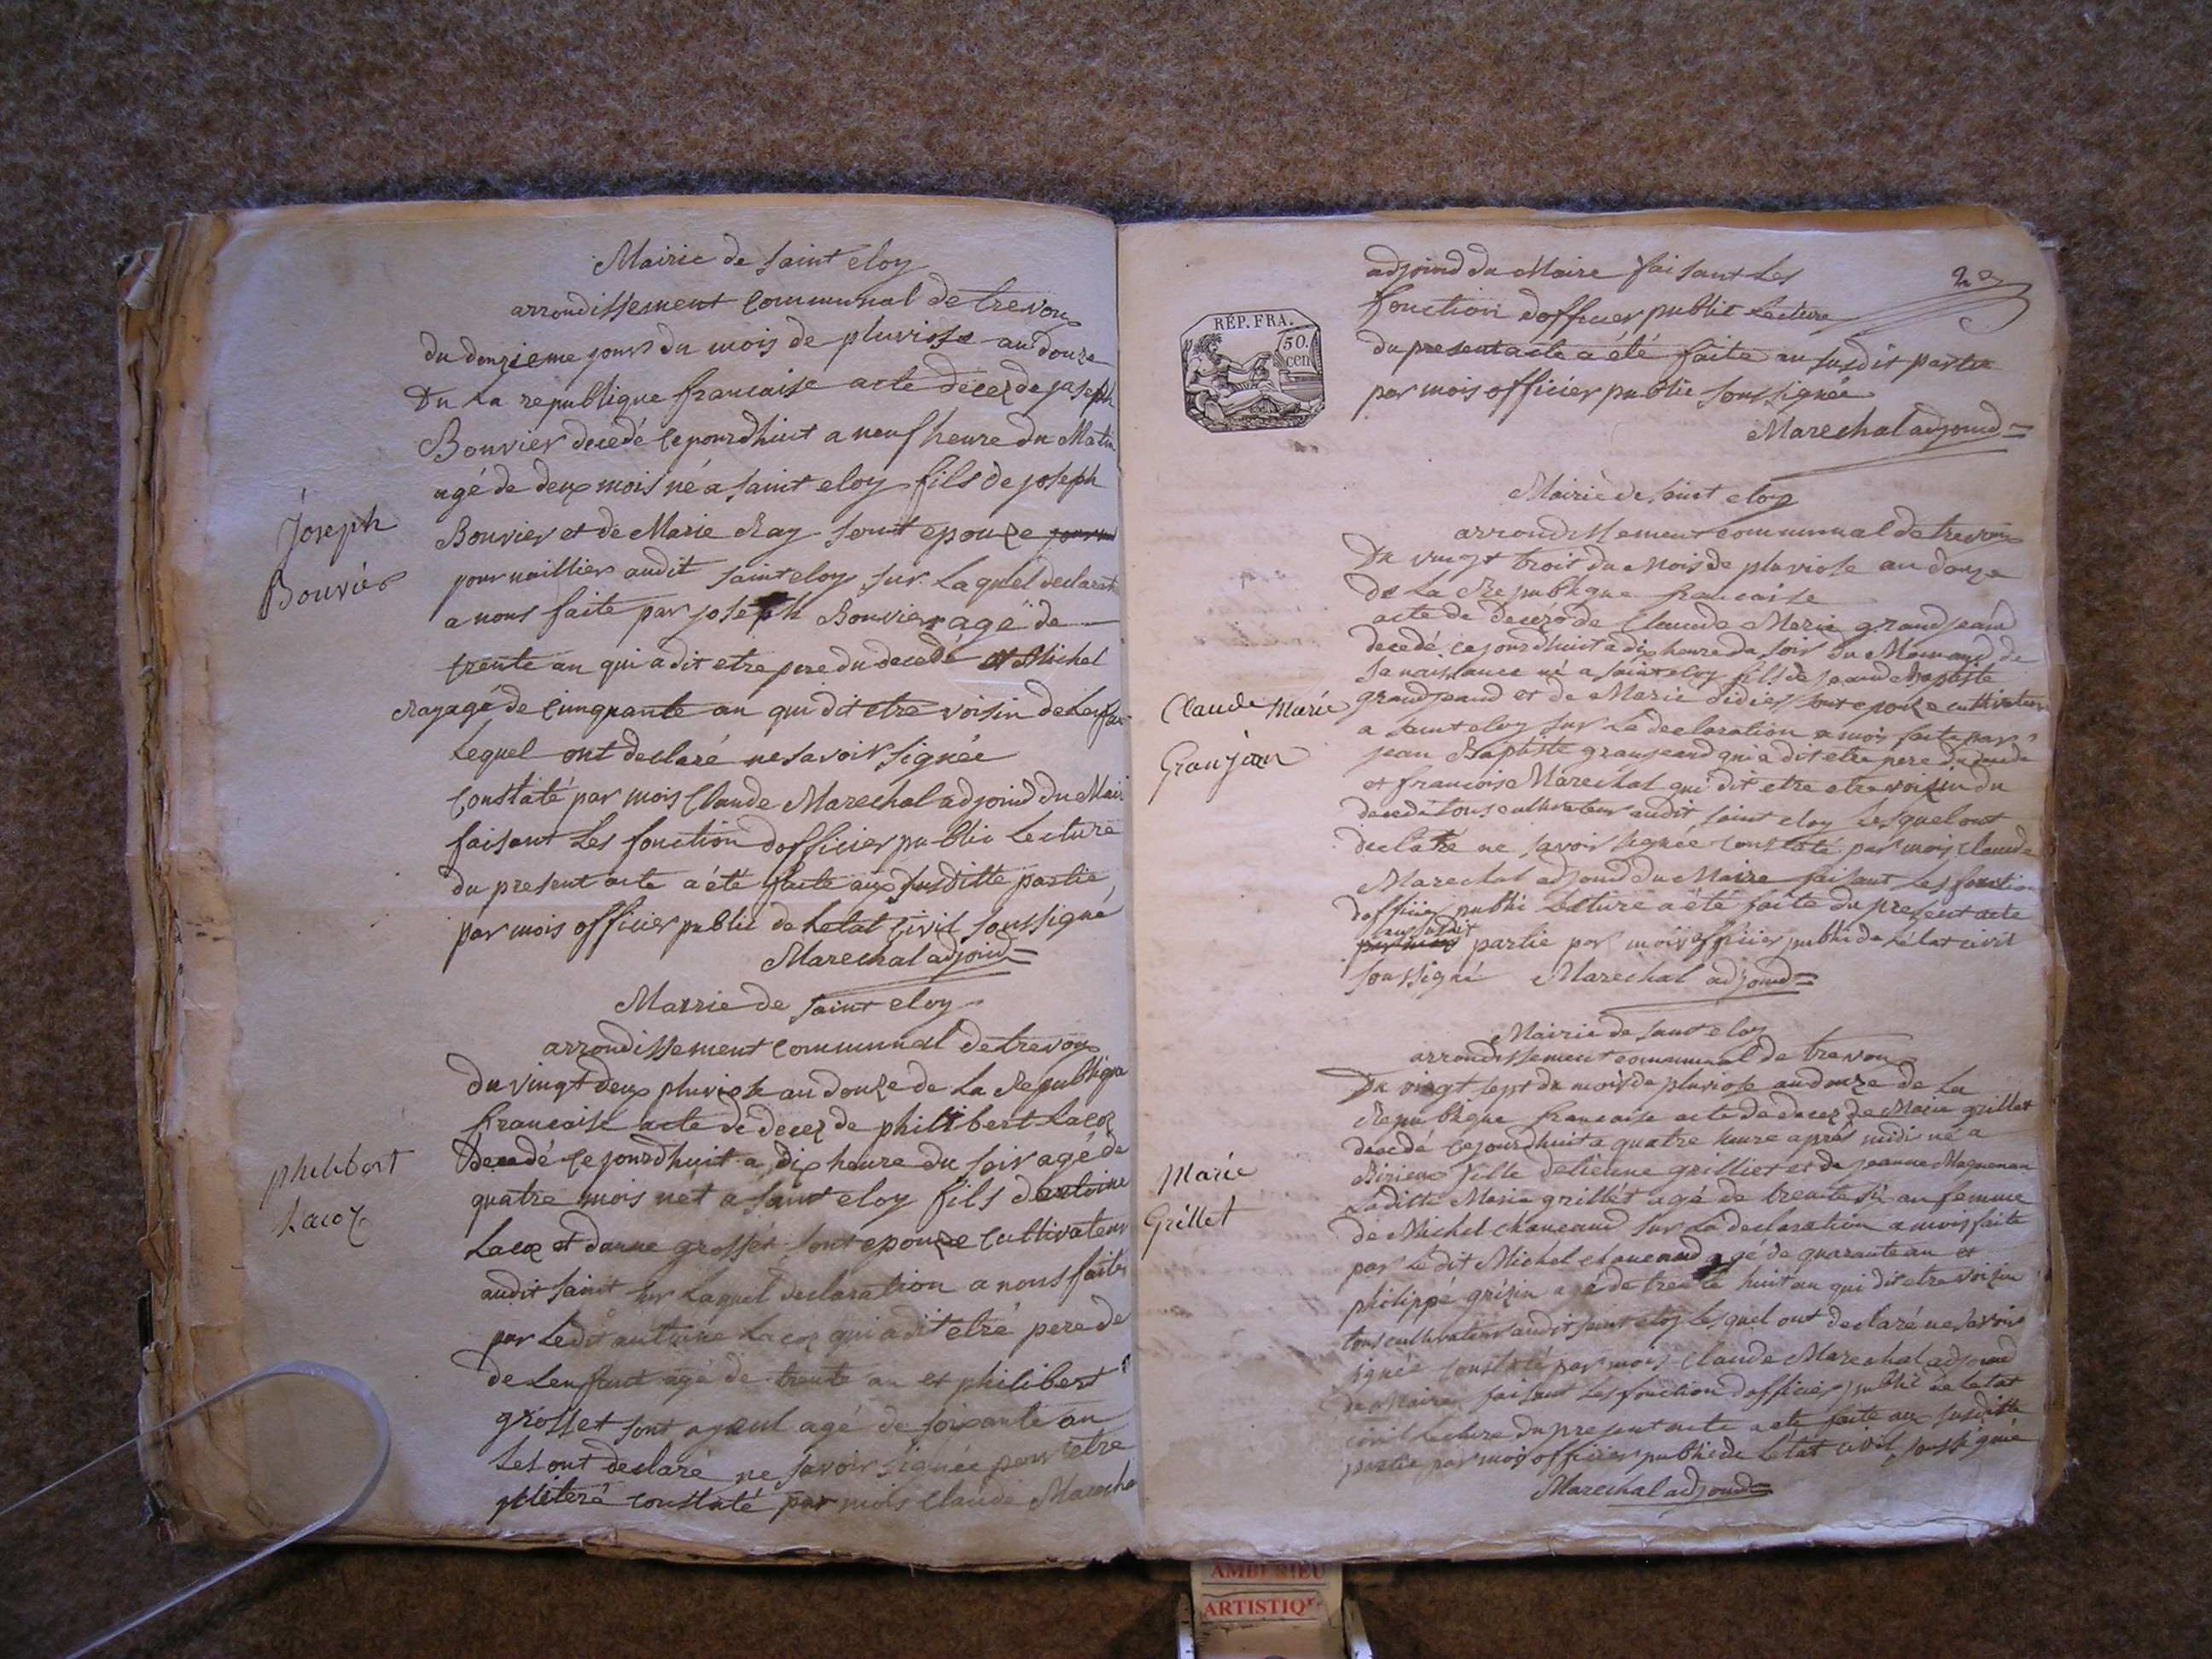 Mairie de saint eloy
arrondissement communal de trevoux
du douzieme jour du mois de pluviose an douze
Du La republique francaise acte decez de joseph
Bouvier decedé cejourdhuit a neuf heure du Matin
agé de deux mois né a saint eloy fils de joseph
Joseph
Bouvier
Bouvier et de Marie Ray sont epouze
journaillier audit saint eloy sur Laquel declarat
a nous faite par joseph Bouvier agé de
trente an qui a dit etre pere du decedé et Michel
Ray agé de cinquante an qui dit etre voisin de Lenfan
Lequel ont declaré ne savoir signée
Constaté par mois Claude Marechal adjoind du Mair
faisant Les fonction dofficier public Lecture
du present acte a été faite aux susditte partie
par mois officier public de Letat Civil soussigné
Marechal adjoind
Mairie de saint eloy
arrondissement communal de trevoux
du vingt deux pluviose an douze de La Republique
francaise acte de decez de philibert Lacoz
Decedé cejourdhuit a dix heure du soir agé de
philibert
Lacoz
quatre mois net a saint eloy fils dantoine
Lacoz et danne grosset sont epouze Cultivateur
audit saint sur Laquel declaration a nous faite
par Ledit antoine Lacoz qui a dit etre pere de
de Lenfant agé de trente an et philibert
grosset sont ayeul agé de soixante an
Les ont declaré ne savoir signée pour etre
illiteré constaté par mois Claude Marecha
2
adjoind du Maire faisant Les
fonction dofficier public Lecture
du present acte a été faite au susdit partie
par mois officier public soussignée
Marechal adjoind
RÉP. FRA.
50.
cen
Mairie de saint eloy
arrondissement communal de trevoux
Du vingt trois du Mois de pluviose an douze
De La Republique francaise
acte de decez de Claude Marie grandjeand
decedé cejourdhuit a dix heure du soir du Moment de
sa naissance né a saint eloy fils de jeand Baptiste
Claude Marie
Granjan
grandjeand et de Marie didier sont epouze cultivateur
a saint eloy sur La declaration a mois faite par
jean Baptiste granjeand qui a dit etre pere du decedé
et francoise Marechal qui dit etre etre voizin du
decedé tous cultivateur audit saint eloy Lesquel ont
declaré ne savoir signée constaté par mois Claude
Marechal adjoind du Maire faisant Les fonction
dofficier public Lecture a été faite du present acte
au susdit
partie par mois officier public de Létat civil
soussigné Marechal adjoind
Mairie de saint eloy
arrondissement communal de trevoux
Du vingt sept du mois de pluviose an douze de La
Republique francaise acte de decez de Marie grillet
decedé cejourdhuit a quatre heure aprés midi né a
Birieux fille detienne grilliet et de jeanne Maguenan
Marie
Grillet
Laditte Marie grillet agé de trente si an femme
de Michel chaneaud sur La declaration a mois faite
par Ledit Michel chaneaud agé de quarante an et
philippe grizin agé de trente huit an qui dit etre voizin
tous cultivateur audit saint eloy Lesquel ont declaré ne savoir
signée constaté par mois Claude Marechal adjoind
du Maire faisant Les fonction dofficier public de Letat
civil Lecture du present acte a été faite aux susditte
partie par mois officier public de Létat civil soussigné
Marechal adjoind
AMBERIEU
ARTISTIQ